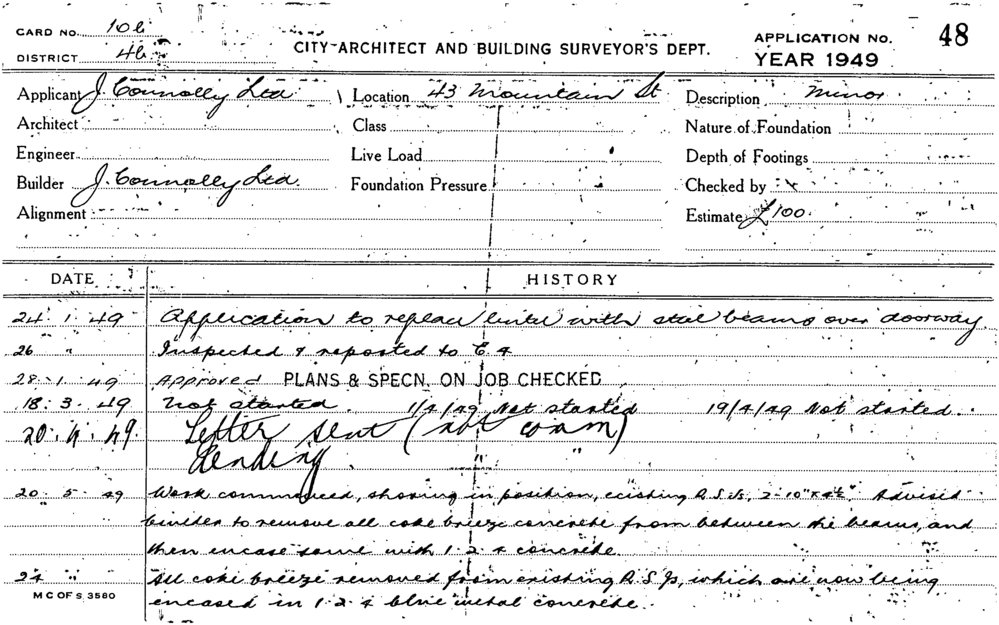 CARD No. 106
DISTRICT 46
CITY ARCHITECT AND BUILDING SURVEYOR'S DEPT.
APPLICATION No. 48
YEAR 1949
Applicant J. Connolly Ltd Location 43 Mountain St Description Minor
Architect Class Nature of Foundation
Engineer Live Load Depth of Footings
Builder J. Connolly Ltd. Foundation Pressure Checked by
Alignment Estimate £100
DATE HISTORY
24. 1. 49 Application to replace lintel with steel beams over doorway.
26 " Inspected & reported to C. A
28. 1. 49 Approved PLANS & SPECN. ON JOB CHECKED
18. 3. 49 Not started. 1/4/49 Not started 19/4/49 Not started.
20. 4. 49. Letter sent (not comm)
Pending.
20. 5. 49 Work commenced, shoring in position, existing R.S.Js, 2-10"x4½" Advised
builder to remove all coke breeze concrete from between the beams, and
then encase same with 1. 2. 4 concrete.
24 " All coke breeze removed from existing R.S.Js, which are now being
encased in 1. 2. 4 blue metal concrete.
M C OF S 3580